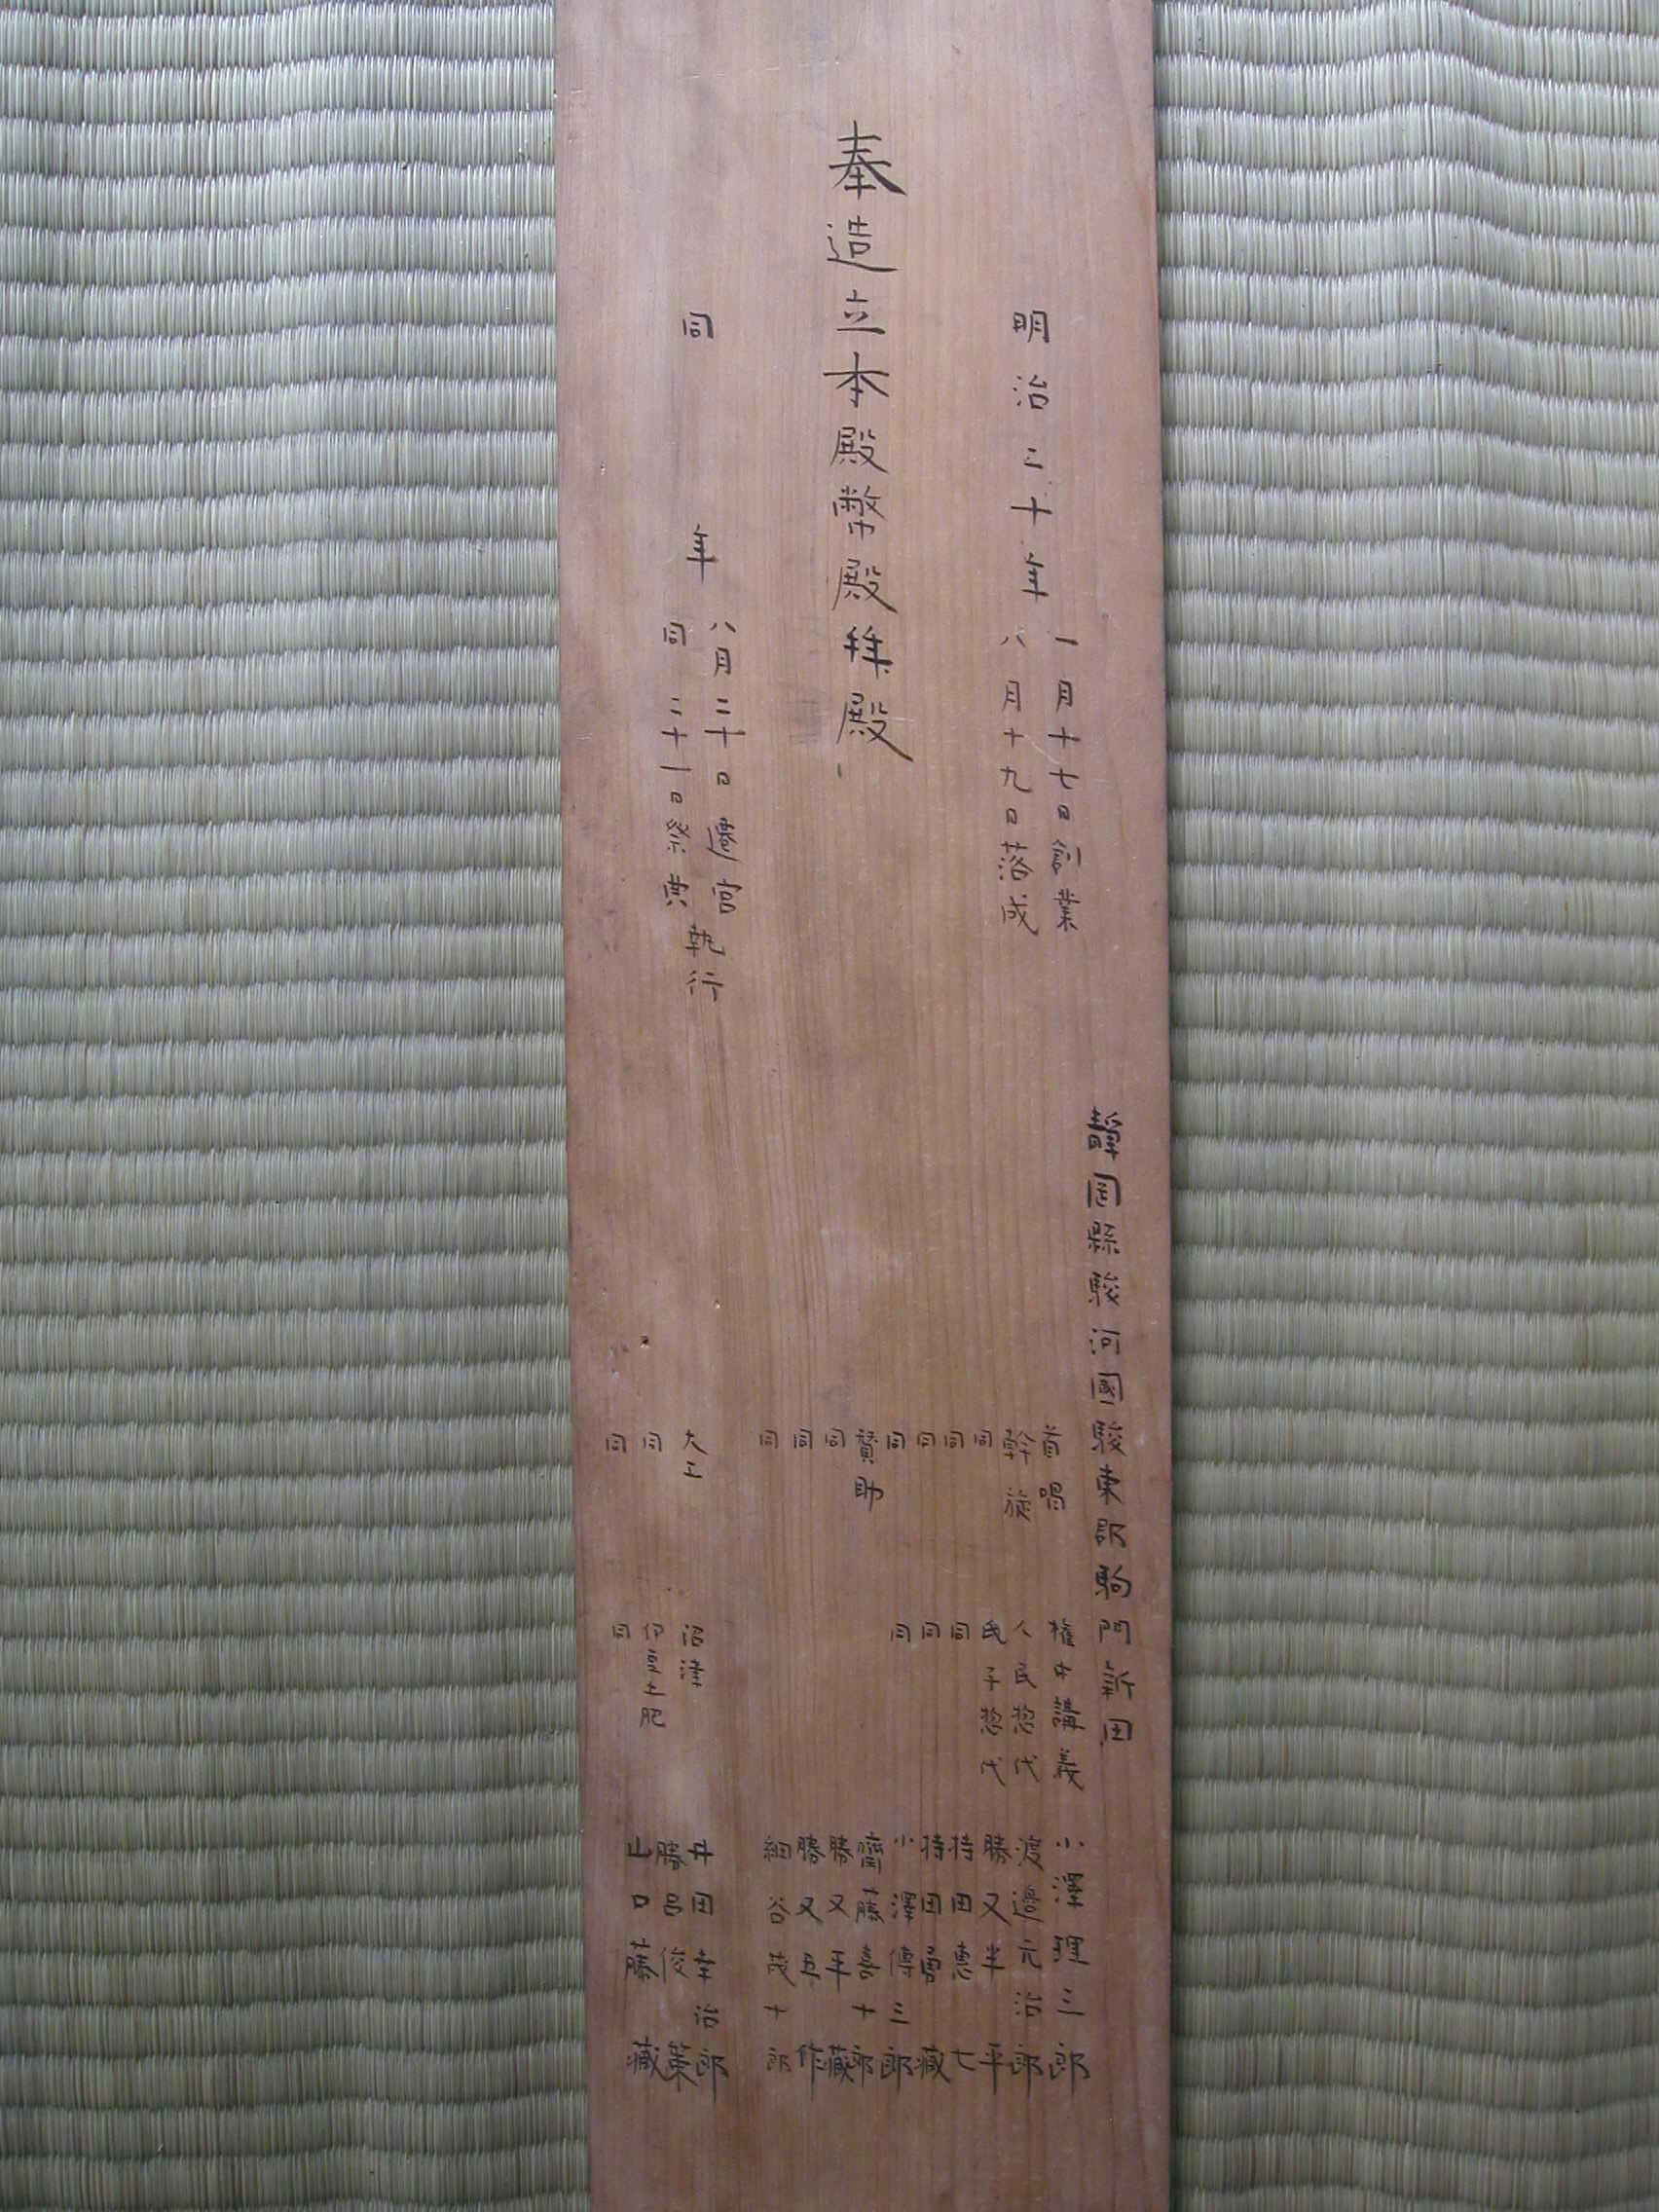 奉造立本殿幣殿拜殿
明治三十年
一月十七日創業
八月十九日落成
同年
八月二十日遷宮
同二十一日祭典
執行
靜岡縣駿河國駿東郡駒門新田
首唱 權少講義 小澤理三郎
斡旋 人民惣代 渡邉元治郎
同 氏子惣代 勝又半平
同 同 持田恵七
同 同 持田勇藏
同 同 小澤傳三郎
賛助 齋藤喜十郎
同 勝又年藏
同 勝又 作
同 細谷茂十郎
大工 沼津 井田幸治郎
同 伊豆土肥 勝呂俊策
同 同 山口藤藏